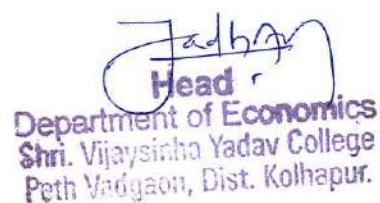 Jadhav
Head
Department of Economics
Shri. Vijaysinha Yadav College
Peth Vadgaon, Dist. Kolhapur.